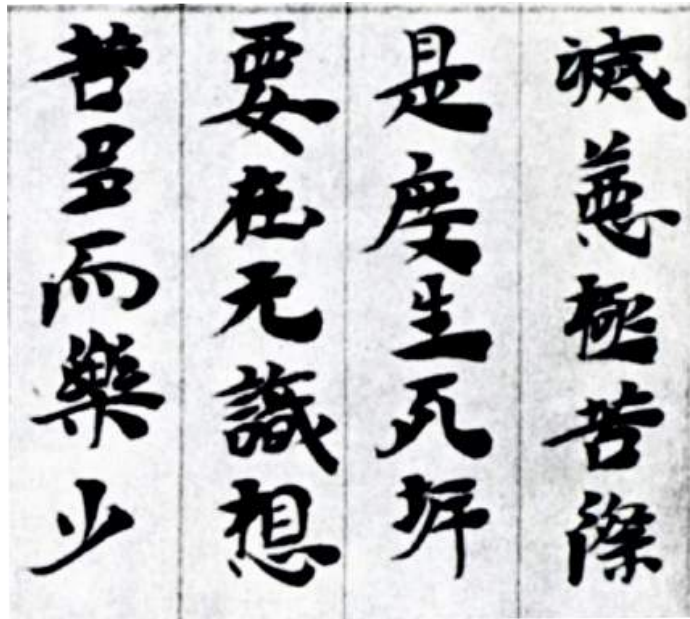 滅惡極苦際
是度生死岸
要在无識想
苦多而樂少